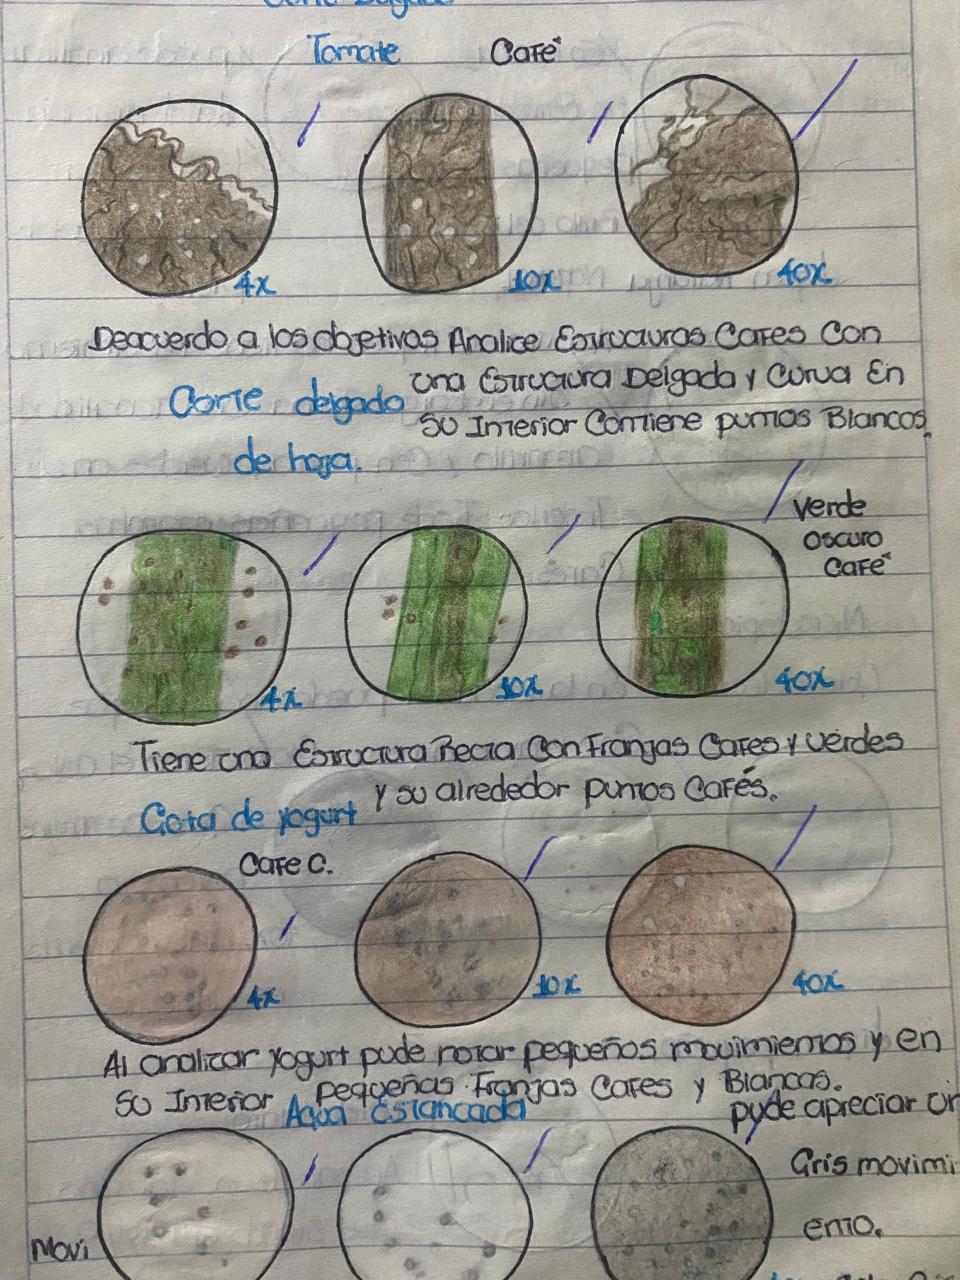 Corte Delgado
Tomate Café
4x 10x 40x
Deacuerdo a los objetivos Analice Estructuras Cafes Con
una Estructura Delgada y Curva En
Corte delgado su Interior Contiene puntos Blancos.
de hoja.
Verde
Oscuro
Café
4x 10x 40x
Tiene una Estructura Recta Con Franjas Cafes y verdes
y su alrededor puntos Cafés.
Gota de yogurt
Cafe C.
4x 10x 40x
Al analizar yogurt pude notar pequeños movimientos y en
su Interior pequeñas Franjas Cafes y Blancas.
Agua Estancada pude apreciar un
Gris movimi
ento.
Movi